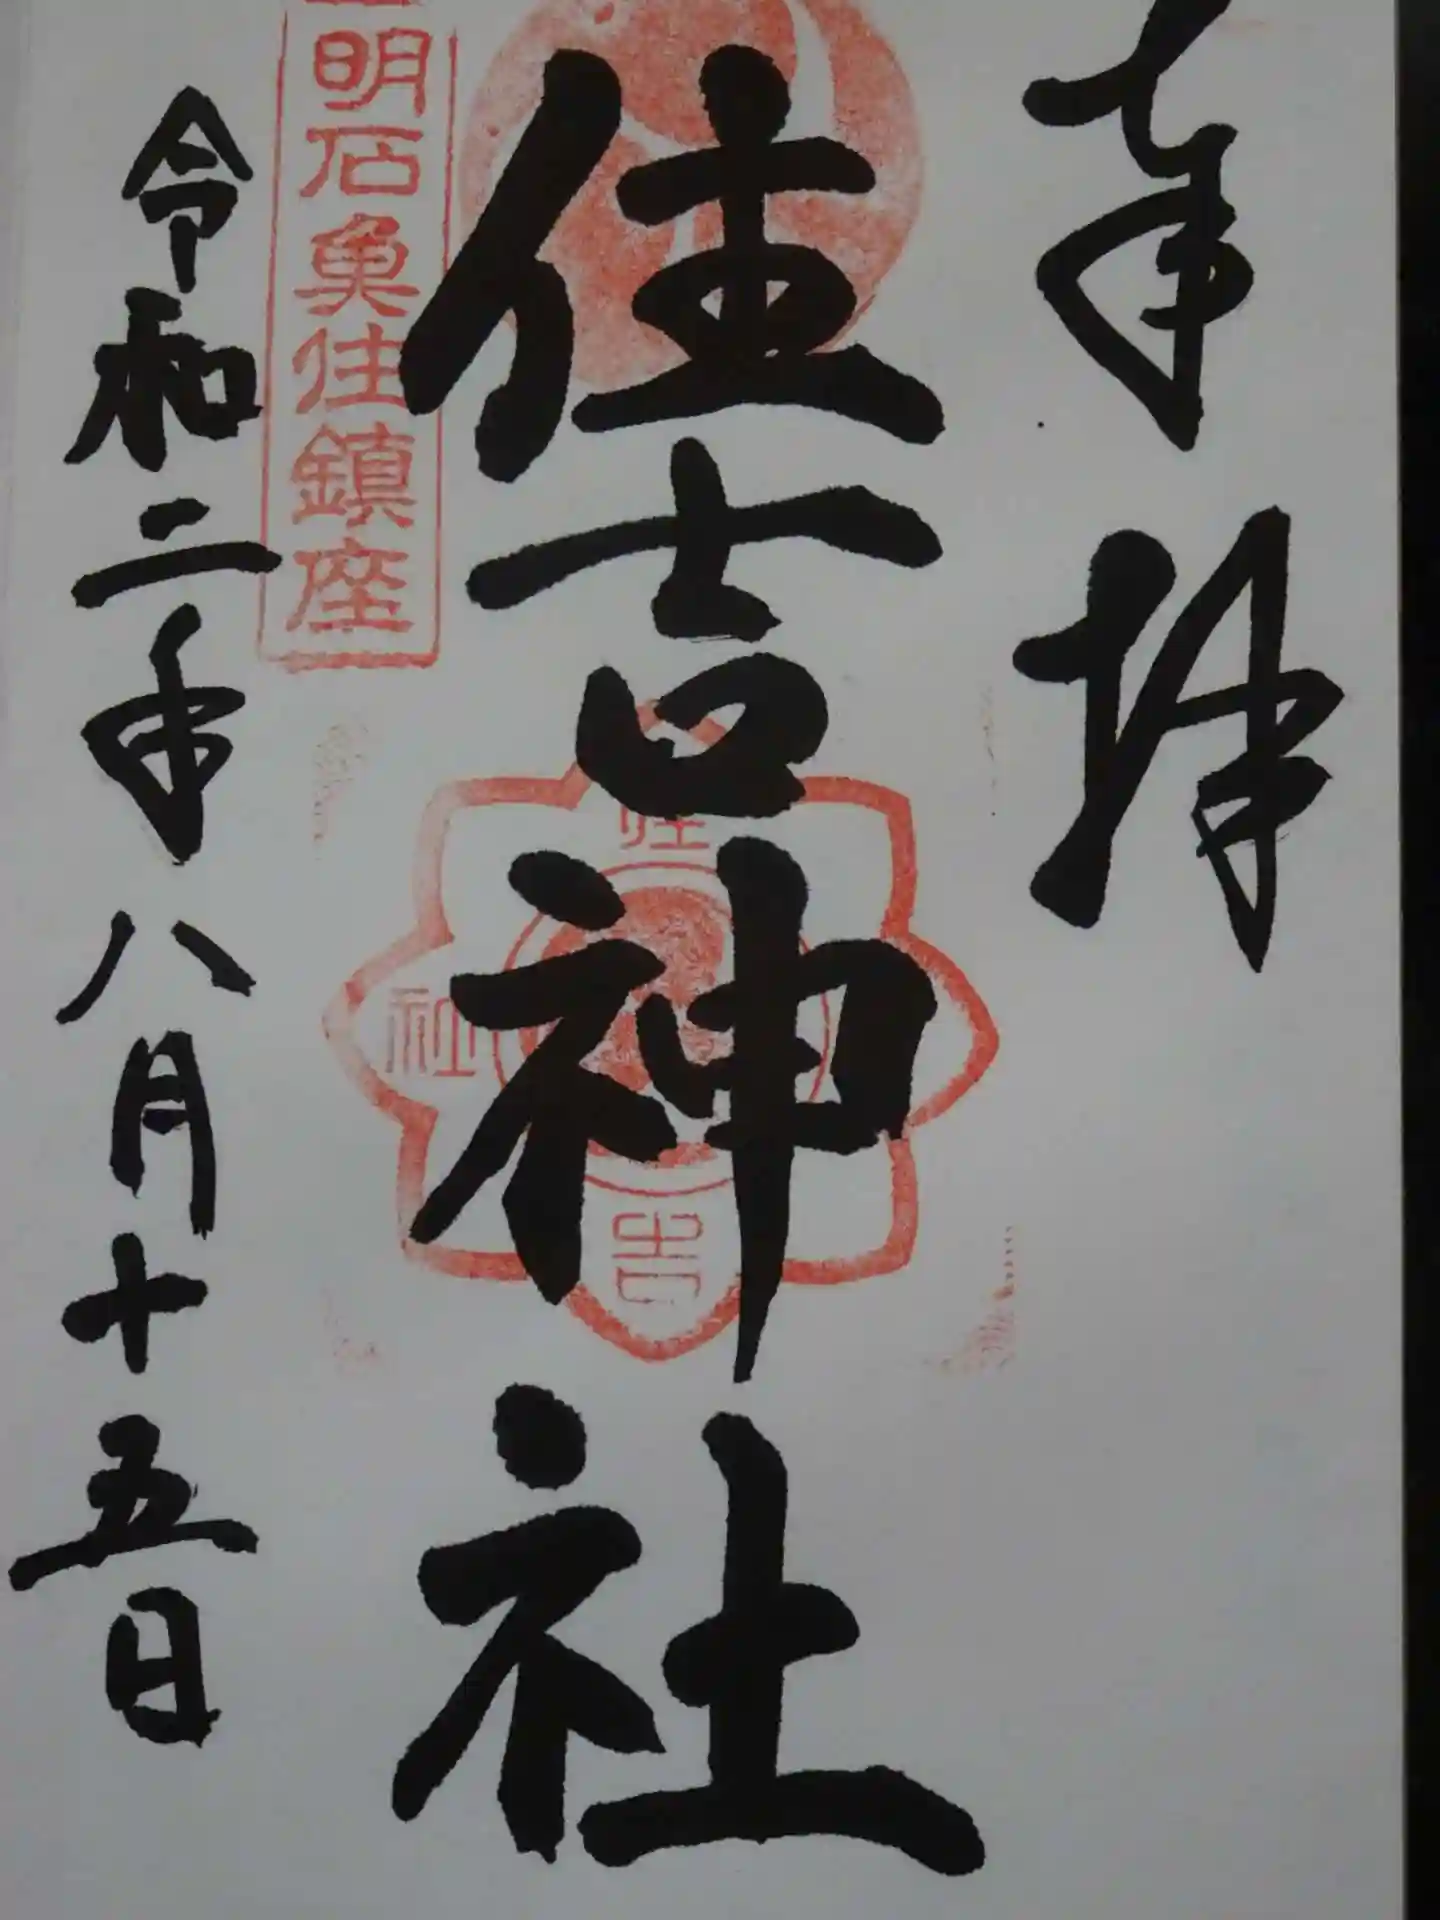 奉拝
住吉神社
明石魚住鎮座
住吉
社
令和二年八月十五日